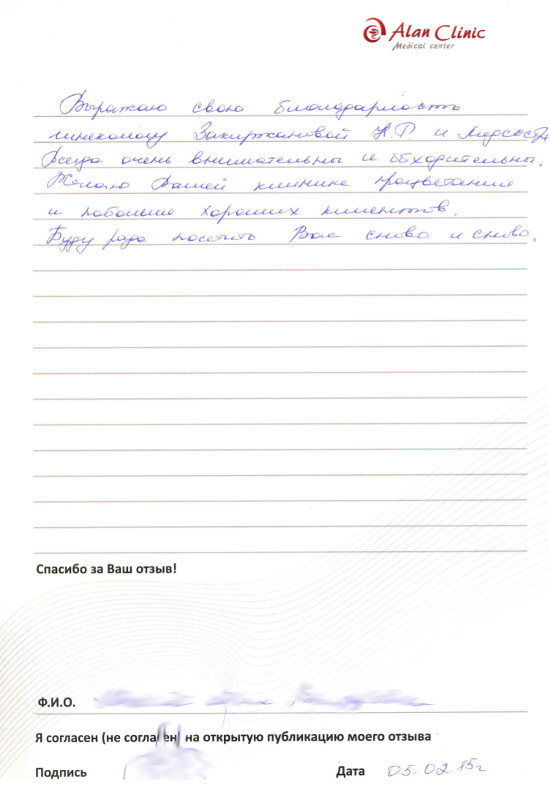 Alan Clinic
Medical center
Выражаю свою благодарность
гинекологу Закиржановой Н.Р и Медсестре
Всегда очень внимательны и обходительны.
Желаю Вашей клинике процветания
и побольше хороших клиентов.
Буду рада посетить Вас снова и снова.
Спасибо за Ваш отзыв!
Ф.И.О.
Я согласен (не согласен) на открытую публикацию моего отзыва
Подпись Дата 05.02.15г